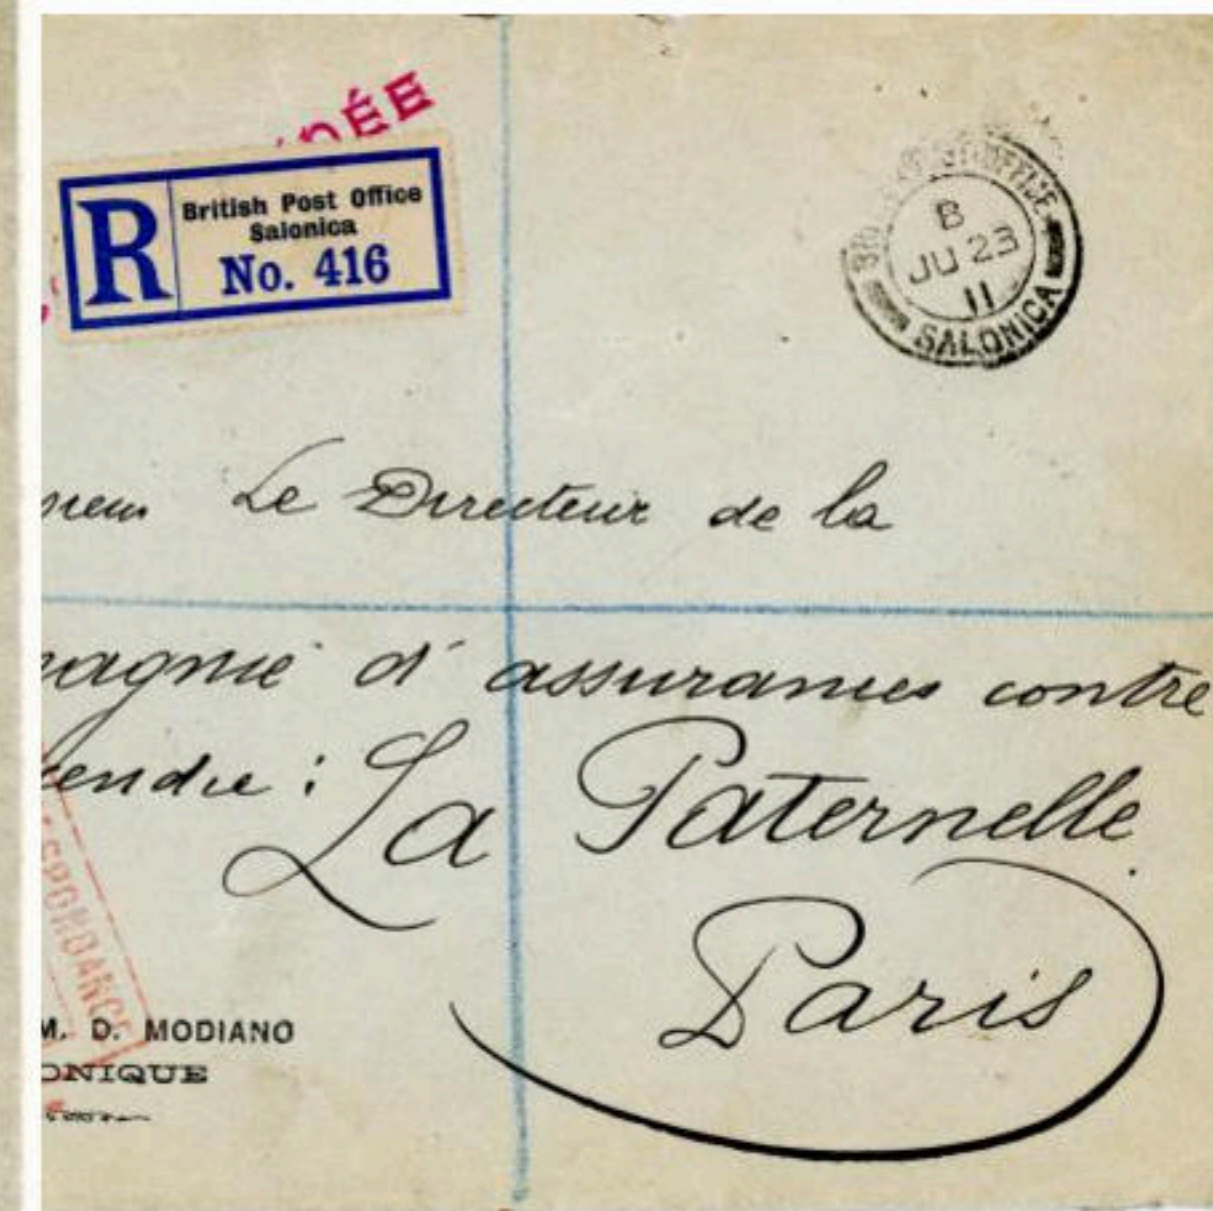 DÉE
R
British Post Office
Salonica
No. 416
POST OFFICE
B
JU 23
11
SALONICA
sieur Le Directeur de la
pagnie d'assurances contre
cendie : La Paternelle
Paris
SPONDANCE
M. D. MODIANO
ONIQUE